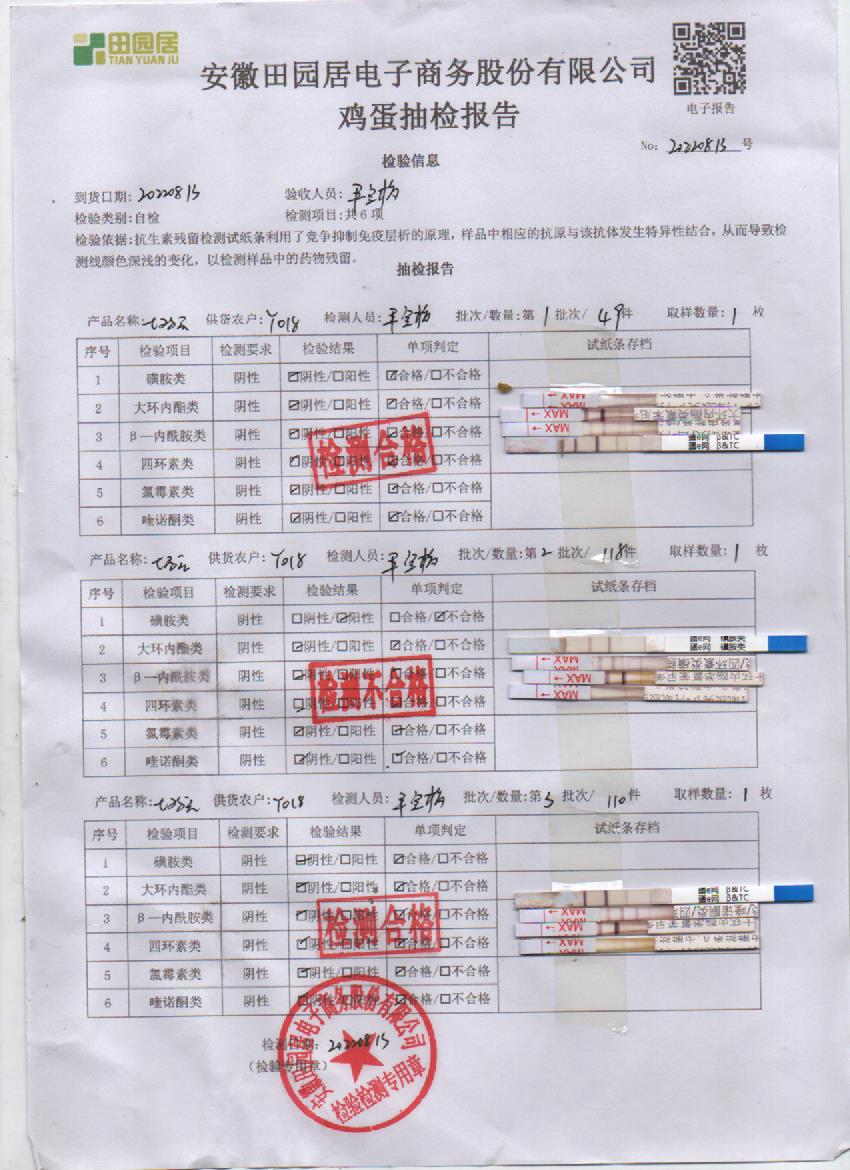 田园居
TIAN YUAN JU
安徽田园居电子商务股份有限公司
鸡蛋抽检报告
电子报告
No: 20220813 号
检验信息
到货日期: 20220813 验收人员:
检验类别:自检 检测项目:共6项
检验依据:抗生素残留检测试纸条利用了竞争抑制免疫层析的原理，样品中相应的抗原与该抗体发生特异性结合，从而导致检
测线颜色深浅的变化，以检测样品中的药物残留。
抽检报告
产品名称: 供货农户:Y018 检测人员: 批次/数量:第1批次/ 49件 取样数量:1 枚
序号 检验项目 检测要求 检验结果 单项判定 试纸条存档
1 磺胺类 阴性 ☑阴性/☐阳性 ☑合格/☐不合格
2 大环内酯类 阴性 ☑阴性/☐阳性 ☑合格/☐不合格
3 β—内酰胺类 阴性 ☑阴性/☐阳性 ☑合格/☐不合格
4 四环素类 阴性 ☑阴性/☐阳性 ☑合格/☐不合格
5 氯霉素类 阴性 ☑阴性/☐阳性 ☑合格/☐不合格
6 喹诺酮类 阴性 ☑阴性/☐阳性 ☑合格/☐不合格
检测合格
MAX
MAX
β&TC
β&TC
产品名称: 供货农户:Y018 检测人员: 批次/数量:第2批次/ 118件 取样数量:1 枚
序号 检验项目 检测要求 检验结果 单项判定 试纸条存档
1 磺胺类 阴性 ☐阴性/☑阳性 ☐合格/☑不合格
2 大环内酯类 阴性 ☑阴性/☐阳性 ☑合格/☐不合格
3 β—内酰胺类 阴性 ☑阴性/☐阳性 ☑合格/☐不合格
4 四环素类 阴性 ☑阴性/☐阳性 ☑合格/☐不合格
5 氯霉素类 阴性 ☑阴性/☐阳性 ☑合格/☐不合格
6 喹诺酮类 阴性 ☑阴性/☐阳性 ☑合格/☐不合格
检测不合格
磺胺类
磺胺类
MAX
MAX
MAX
产品名称: 供货农户:Y018 检测人员: 批次/数量:第3批次/ 110件 取样数量:1 枚
序号 检验项目 检测要求 检验结果 单项判定 试纸条存档
1 磺胺类 阴性 ☑阴性/☐阳性 ☑合格/☐不合格
2 大环内酯类 阴性 ☑阴性/☐阳性 ☑合格/☐不合格
3 β—内酰胺类 阴性 ☑阴性/☐阳性 ☑合格/☐不合格
4 四环素类 阴性 ☑阴性/☐阳性 ☑合格/☐不合格
5 氯霉素类 阴性 ☑阴性/☐阳性 ☑合格/☐不合格
6 喹诺酮类 阴性 ☑阴性/☐阳性 ☑合格/☐不合格
检测合格
β&TC
β&TC
MAX
MAX
MAX
检测日期: 20220813
（检验专用章）
安徽田园居电子商务股份有限公司
检验检测专用章